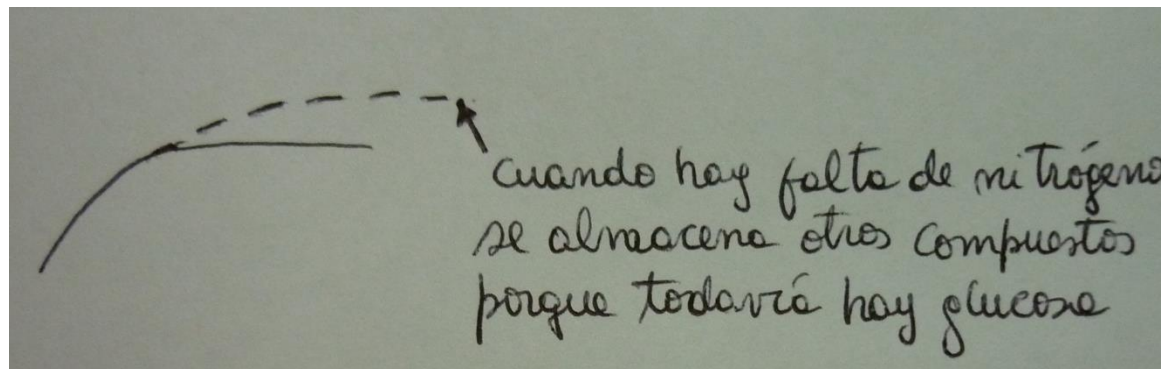 cuando hay falta de nitrógeno
se almacena otros compuestos
porque todavía hay glucosa